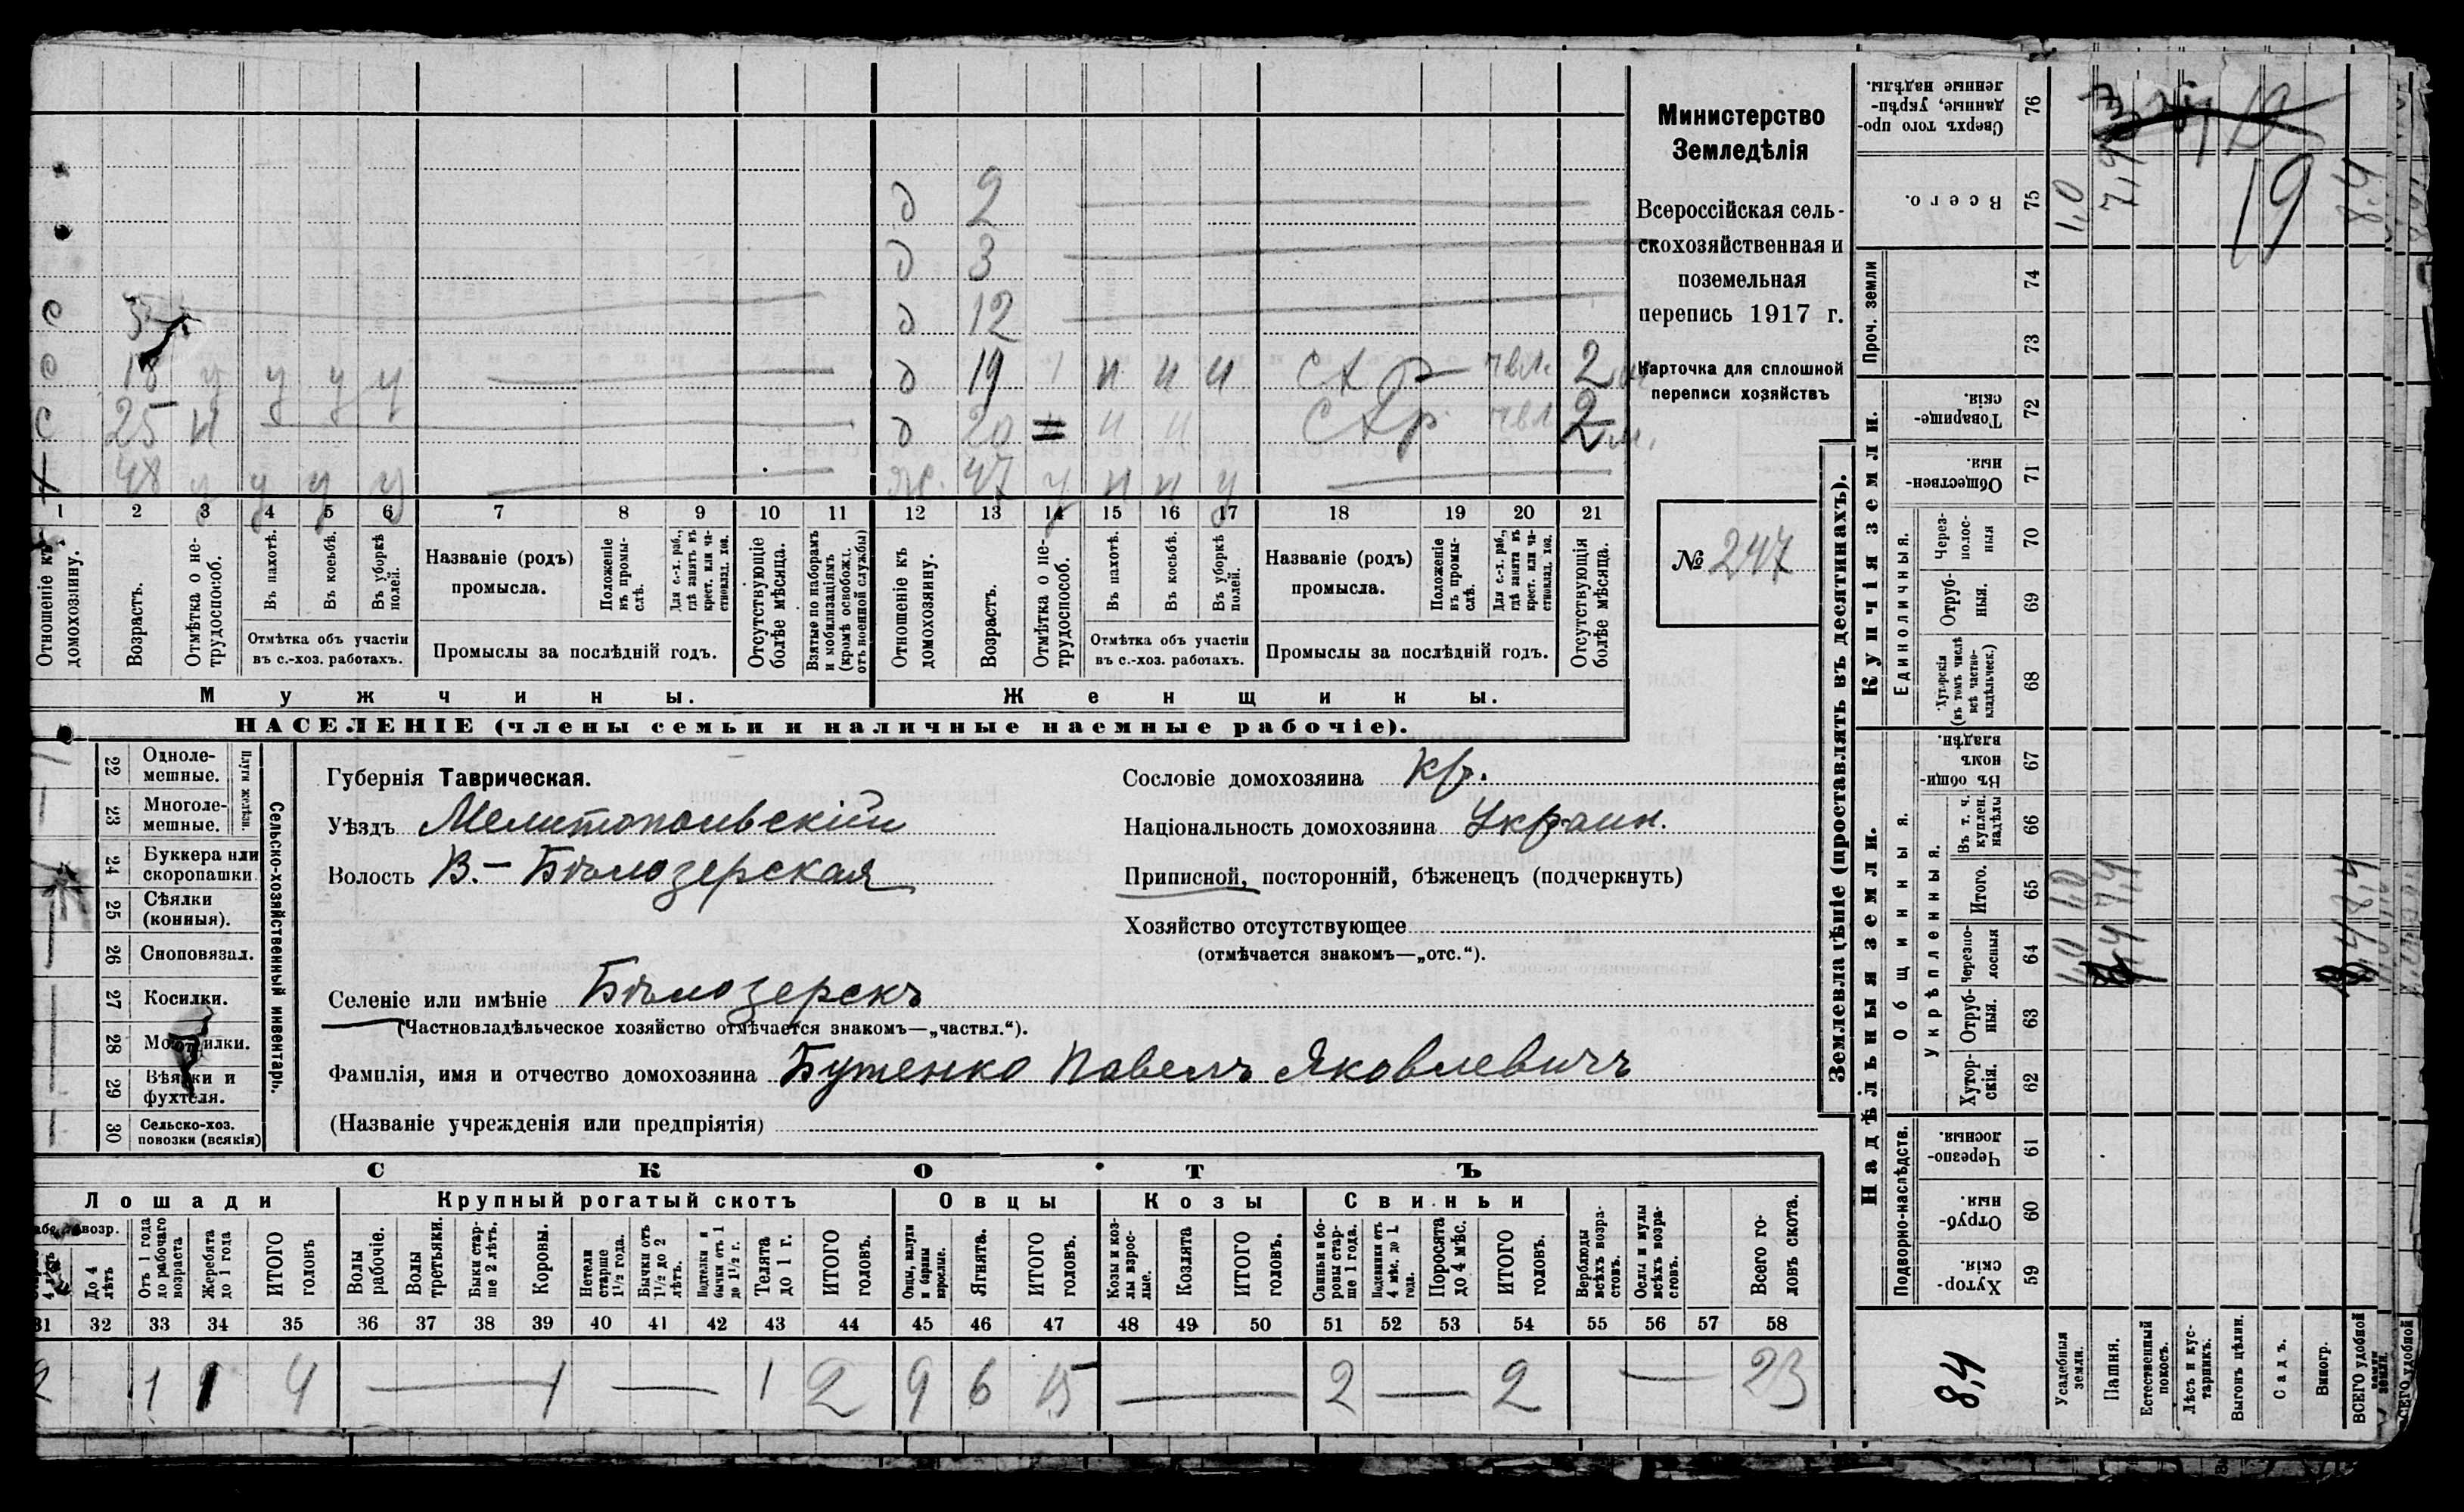 д 2
д 3
с 5 д 12
с 18 у у у у д 19 и и и схр чвл. 2 м
с 25 н д 20 и и схр чвл 2 м.
х 48 у у у у ж. 47 у и и у
1 2 3 4 5 6 7 8 9 10 11 12 13 14 15 16 17 18 19 20 21
Отношеніе къ домохозяину.
Возрастъ.
Отмѣтка о нетрудоспособ.
Въ пахотѣ.
Въ косьбѣ.
Въ уборкѣ полей.
Отмѣтка объ участіи
въ с.-хоз. работахъ.
Названіе (родъ)
промысла.
Положеніе въ промыслѣ.
Для с.-х. раб., гдѣ занятъ въ крест. или частновлад. хоз.
Промыслы за послѣдній годъ.
Отсутствующіе болѣе мѣсяца.
Взятые по наборамъ и мобилизаціямъ (кромѣ освобожд. отъ военной службы)
Отношеніе къ домохозяину.
Возрастъ.
Отмѣтка о нетрудоспособ.
Въ пахотѣ.
Въ косьбѣ.
Въ уборкѣ полей.
Отмѣтка объ участіи
въ с.-хоз. работахъ.
Названіе (родъ)
промысла.
Положеніе въ промыслѣ.
Для с.-х. раб., гдѣ занята въ крест. или частновлад. хоз.
Промыслы за послѣдній годъ.
Отсутствующія болѣе мѣсяца.
Мужчины.
Женщины.
НАСЕЛЕНІЕ (члены семьи и наличные наемные рабочіе).
Министерство
Земледѣлія
Всероссійская сель-
скохозяйственная и
поземельная
перепись 1917 г.
Карточка для сплошной
переписи хозяйствъ
№ 247
22 Одноле-
мешные.
23 Многоле-
мешные.
Плуги желѣзн.
24 Буккера или
скоропашки
25 Сѣялки
(конныя).
26 Сноповязал.
27 Косилки.
28 Мо илки.
29 Вѣялки и
фухтеля.
30 Сельско-хоз.
повозки (всякія)
Сельско-хозяйственный инвентарь.
Губернія Таврическая.
Уѣздъ Мелитопольскій
Волость В.-Бѣлозерская
Сословіе домохозяина кр.
Національность домохозяина Украин.
Приписной, посторонній, бѣженецъ (подчеркнуть)
Хозяйство отсутствующее
(отмѣчается знакомъ—„отс.“).
Селеніе или имѣніе Бѣлозерскъ
(Частновладѣльческое хозяйство отмѣчается знакомъ—„частвл.“).
Фамилія, имя и отчество домохозяина Бутенко Павелъ Яковлевичъ
(Названіе учрежденія или предпріятія)
СКОТЪ
Лошади Крупный рогатый скотъ Овцы Козы Свиньи
До 4 лѣтъ
Отъ 1 года до рабочаго возраста
Жеребята до 1 года
ИТОГО головъ
Волы рабочіе.
Волы третьяки.
Быки старше 2 лѣтъ.
Коровы.
Нетели старше 1½ года.
Бычки отъ 1½ до 2 лѣтъ.
Подтелки и бычки отъ 1 до 1½ г.
Телята до 1 г.
ИТОГО головъ.
Овцы, валухи и бараны взрослые.
Ягнята.
ИТОГО головъ.
Козы и козлы взрослые.
Козлята
ИТОГО головъ.
Свиньи и боровы старше 1 года.
Подсвинки отъ 4 мѣс. до 1 года.
Поросята до 4 мѣс.
ИТОГО головъ.
Верблюды всѣхъ возрастовъ.
Ослы и мулы всѣхъ возрастовъ.
Всего головъ скота.
31 32 33 34 35 36 37 38 39 40 41 42 43 44 45 46 47 48 49 50 51 52 53 54 55 56 57 58
2 1 1 4 — 1 — 1 2 9 6 15 — 2 — 2 — 23
Землевладѣніе (проставлять въ десятинахъ).
Купчія земли.
Надѣльныя земли.
Сверхъ того проданные, укрѣпленные надѣлы. 76
Всего. 75 1,0 7,4 19 8,4
Проч. земли 74 73
Товарищескія. 72
Общественныя. 71
Единоличныя.
Черезполосныя 70
Отрубныя. 69
Хуторскія (въ томъ числѣ всѣ частновладѣльческ.) 68
Общинныя.
Въ общинномъ владѣн. 67
Укрѣпленныя.
Въ т. ч. куплен. надѣлы 66
Итого. 65 1,0 7,4 8,4
Черезполосныя 64 1,0 7,4 8,4
Отрубныя. 63
Хуторскія. 62
Подворно-наслѣдств.
Черезполосныя. 61
Отрубныя. 60
Хуторскія. 59
8,4
Усадебныя земли.
Пашня.
Естественный покосъ.
Лѣсъ и кустарникъ.
Выгонъ цѣлин.
Садъ.
Виногр.
ВСЕГО удобной земли.